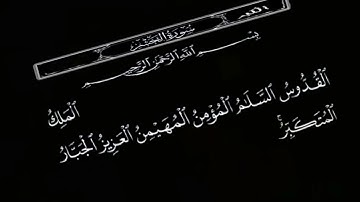 سُورَةُ الحَشْرِ
بِسْمِ اللَّهِ الرَّحْمَنِ الرَّحِيمِ
الْمَلِكُ
الْقُدُّوسُ السَّلَامُ الْمُؤْمِنُ الْمُهَيْمِنُ الْعَزِيزُ الْجَبَّارُ
الْمُتَكَبِّرُ ۚ